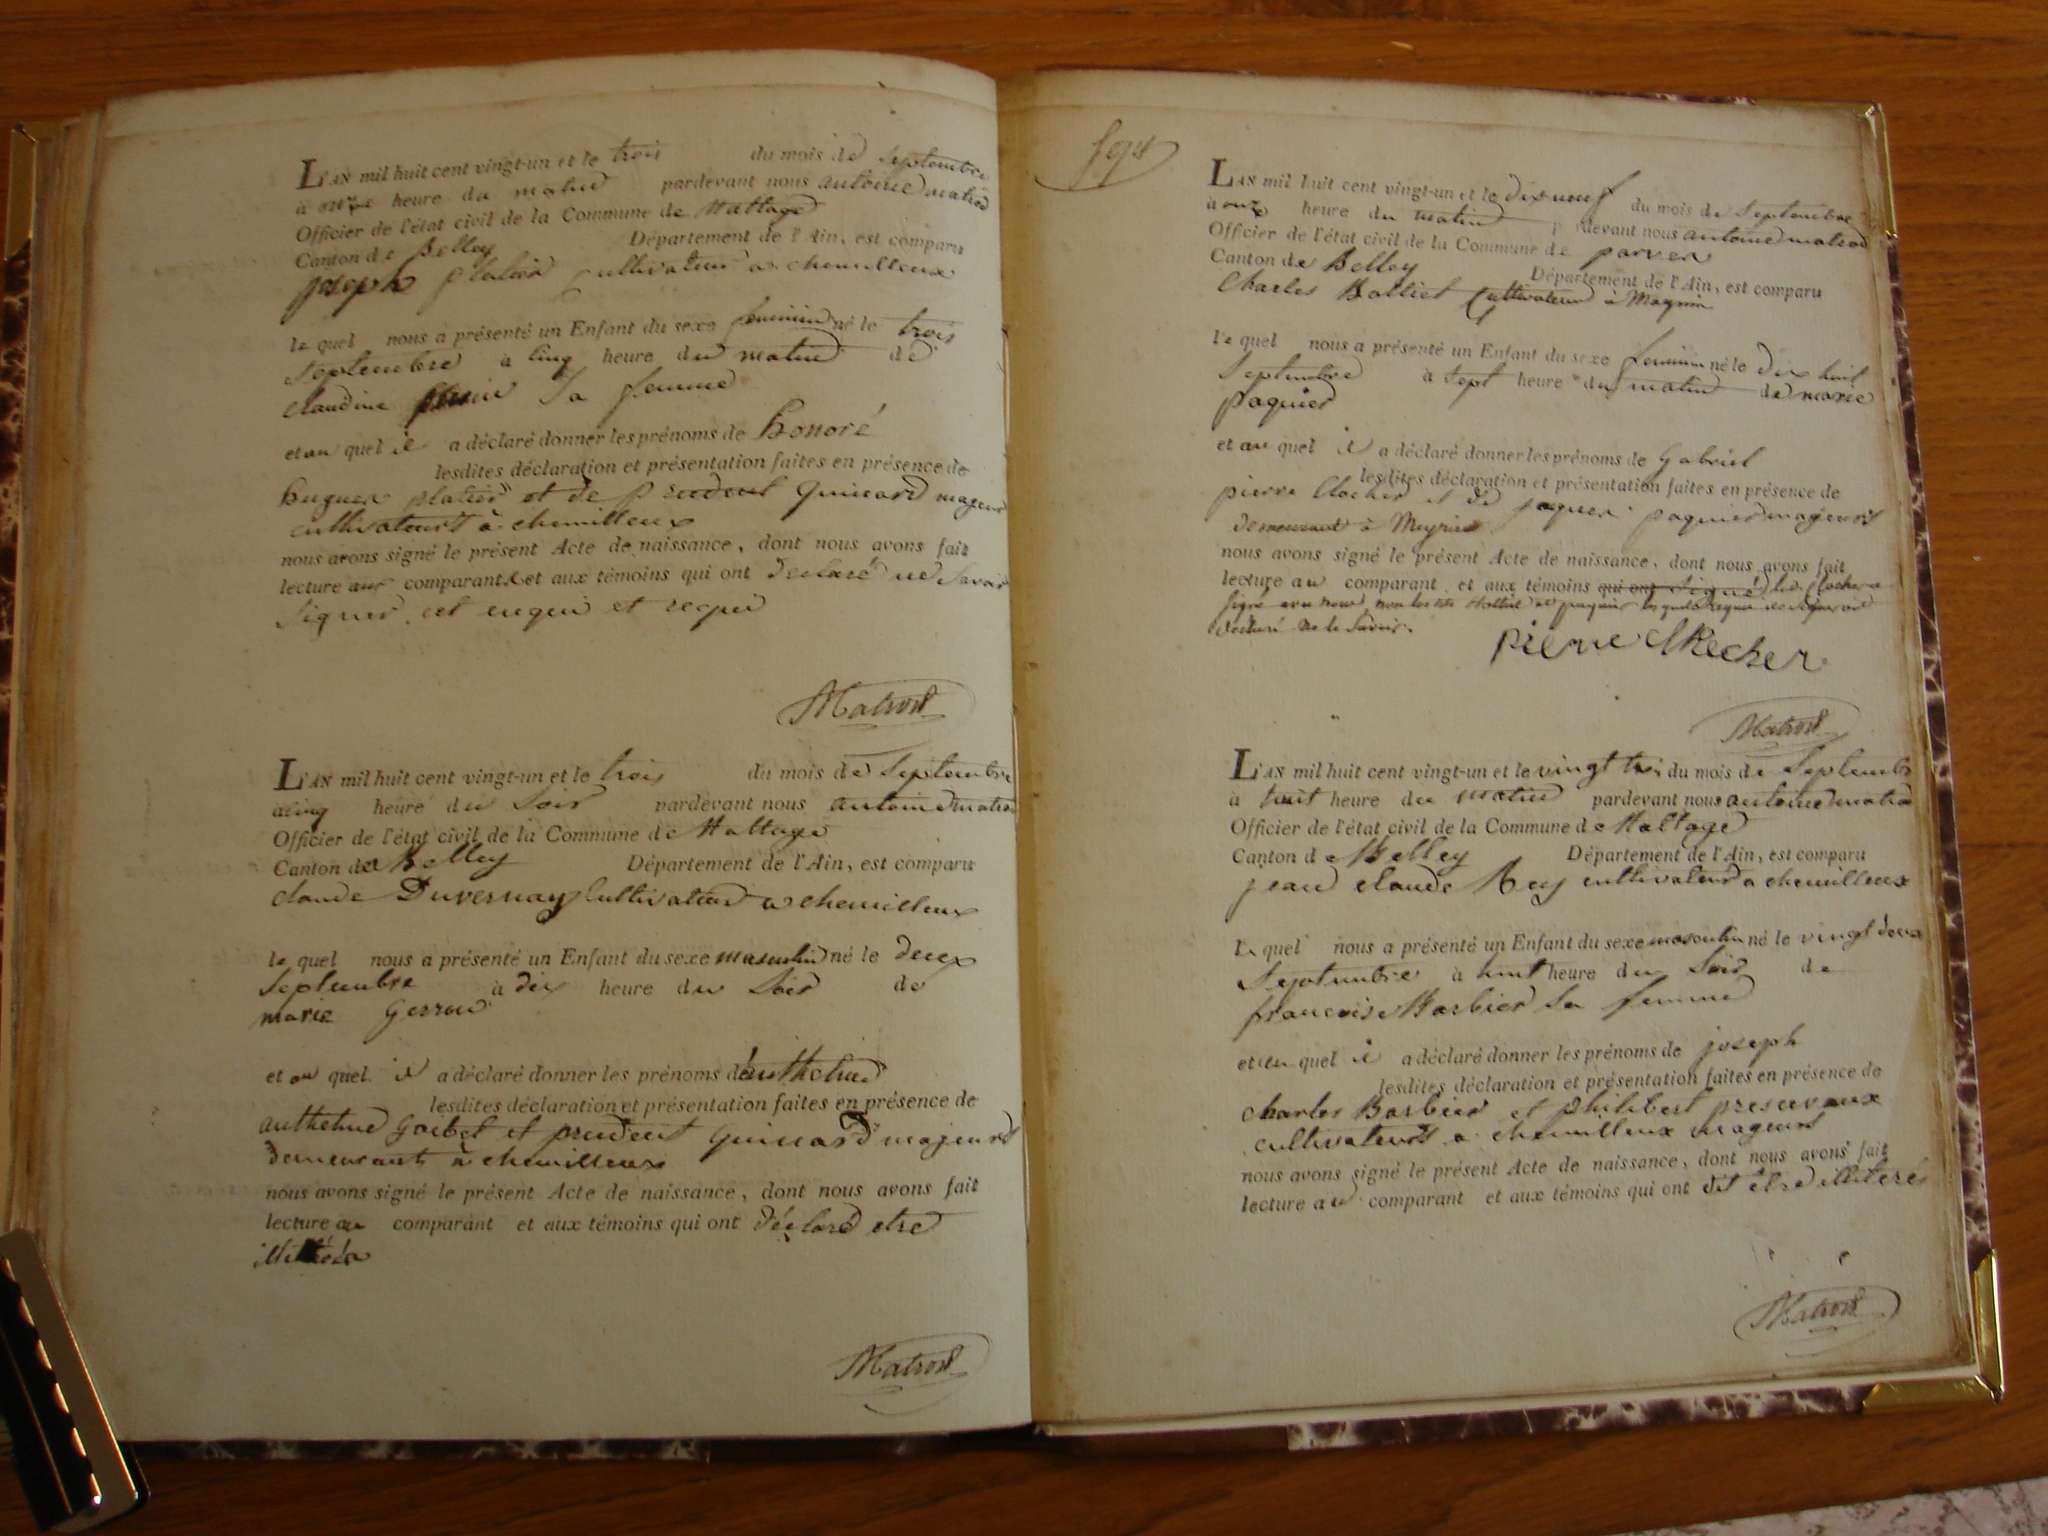 L'AN mil huit cent vingt-un et le trois du mois de Septembre
à onze heure du matin pardevant nous antoine matrod
Officier de l'état civil de la Commune de Nattage
Canton de Belley Département de l'Ain, est comparu
joseph platier cultivateur a chemilleux
le quel nous a présenté un Enfant du sexe feminin né le trois
Septembre à cinq heure du matin de
claudine sa femme
et au quel il a déclaré donner les prénoms de honoré
lesdites déclaration et présentation faites en présence de
hugues platier et de prudent Guinard majeurs
cultivateurs à chemilleux
nous avons signé le présent Acte de naissance, dont nous avons fait
lecture aux comparants et aux témoins qui ont declaré ne Savoir
Signer, cet enquis et requis
Matrod
L'AN mil huit cent vingt-un et le trois du mois de Septembre
a cinq heure du Soir pardevant nous antoine matrod
Officier de l'état civil de la Commune de Nattage
Canton de Belley Département de l'Ain, est comparu
claude Duvernay Cultivateur a chemilleux
le quel nous a présenté un Enfant du sexe masculin né le deux
Septembre à dix heure du Soir de
marie
et au quel il a déclaré donner les prénoms d'anthelme
lesdites déclaration et présentation faites en présence de
anthelme Goibet et prudent Guinard majeurs
demeurants à chemilleux
nous avons signé le présent Acte de naissance, dont nous avons fait
lecture au comparant et aux témoins qui ont déclaré etre
illitérés
Matrod
L'AN mil huit cent vingt-un et le dix neuf du mois de Septembre
à onze heure du matin pardevant nous antoine matrod
Officier de l'état civil de la Commune de parves
Canton de Belley Département de l'Ain, est comparu
Charles Cultivateur à
le quel nous a présenté un Enfant du sexe feminin né le dix huit
Septembre à sept heure du matin de marie
paquier
et au quel il a déclaré donner les prénoms de Gabriel
lesdites déclaration et présentation faites en présence de
pierre Clocher et de jaques paquier majeurs
demeurant à
nous avons signé le présent Acte de naissance, dont nous avons fait
lecture au comparant et aux témoins qui ont Signé, led. Clocher a
Signé avec nous, non les et paquier requis de Signer ont
declaré ne le Savoir.
pierre Clocher
Matrod
L'AN mil huit cent vingt-un et le vingt trois du mois de Septembre
à huit heure du matin pardevant nous antoine matrod
Officier de l'état civil de la Commune de Nattage
Canton de Belley Département de l'Ain, est comparu
jean claude Rey cultivateur a chemilleux
le quel nous a présenté un Enfant du sexe masculin né le vingt deux
Septembre à huit heure du Soir de
françoise Barbier Sa femme
et au quel il a déclaré donner les prénoms de joseph
lesdites déclaration et présentation faites en présence de
charles Barbier et philibert
cultivateurs a chemilleux majeurs
nous avons signé le présent Acte de naissance, dont nous avons fait
lecture au comparant et aux témoins qui ont dit être illiterés
Matrod